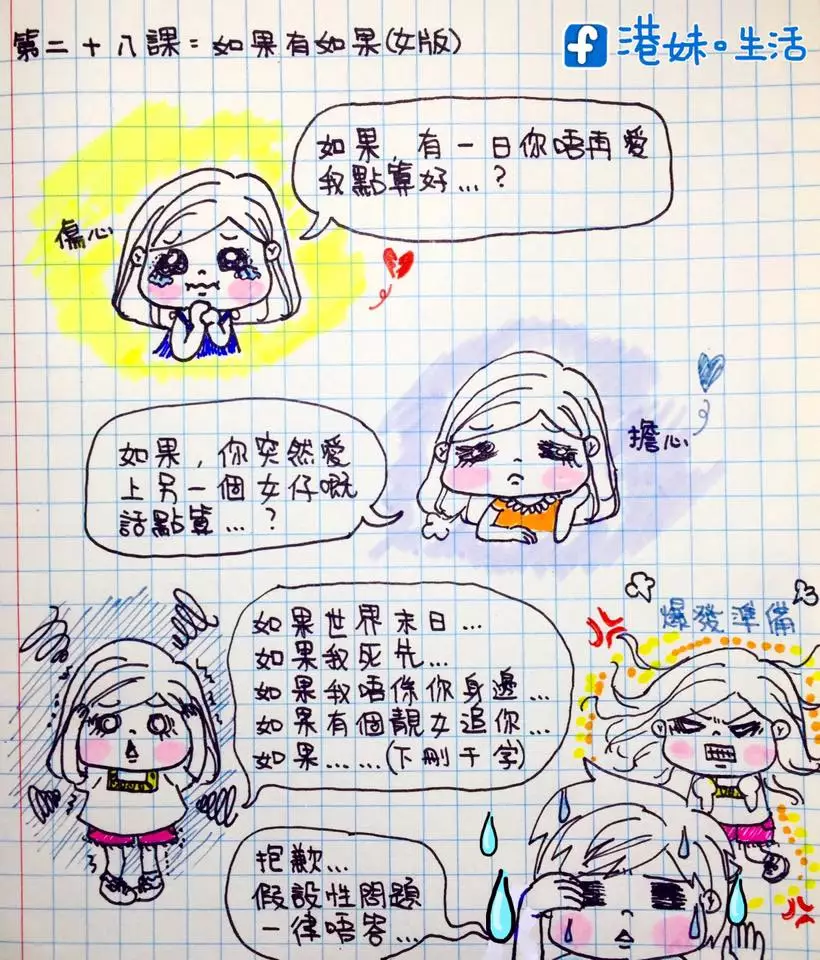 第二十八課：如果有如果(女版)
港妹。生活
如果,有一日你唔再愛
我點算好...？
傷心
擔心
如果,你突然愛
上另一個女仔嘅
話點算...？
如果世界末日...
如果我死先...
如果我唔係你身邊...
如果有個靚女追你...
如果......(下刪千字)
爆發準備
抱歉...
假設性問題
一律唔答...